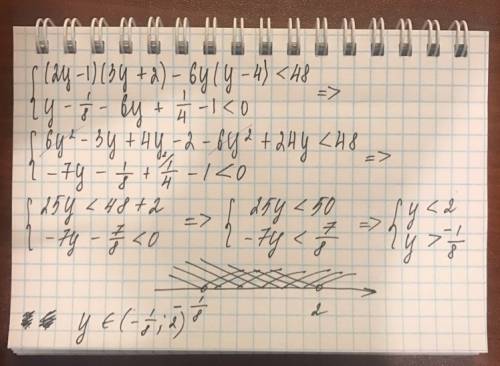 { (2y-1)(3y+2) - 6y(y-4) < 48
{ y - 1/8 - 6y + 1/4 - 1 < 0 =>
{ 6y² - 3y + 4y - 2 - 6y² + 24y < 48
{ -7y - 1/8 + 1/4 - 1 < 0 =>
{ 25y < 48+2 => { 25y < 50 => { y < 2
{ -7y - 7/8 < 0 { -7y < 7/8 { y > -1/8
-1/8 2
y ∈ (-1/8; 2)